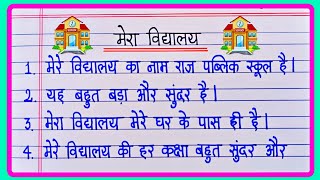 मेरा विद्यालय
1. मेरे विद्यालय का नाम राज पब्लिक स्कूल है।
2. यह बहुत बड़ा और सुंदर है।
3. मेरा विद्यालय मेरे घर के पास ही है।
4. मेरे विद्यालय की हर कक्षा बहुत सुंदर और